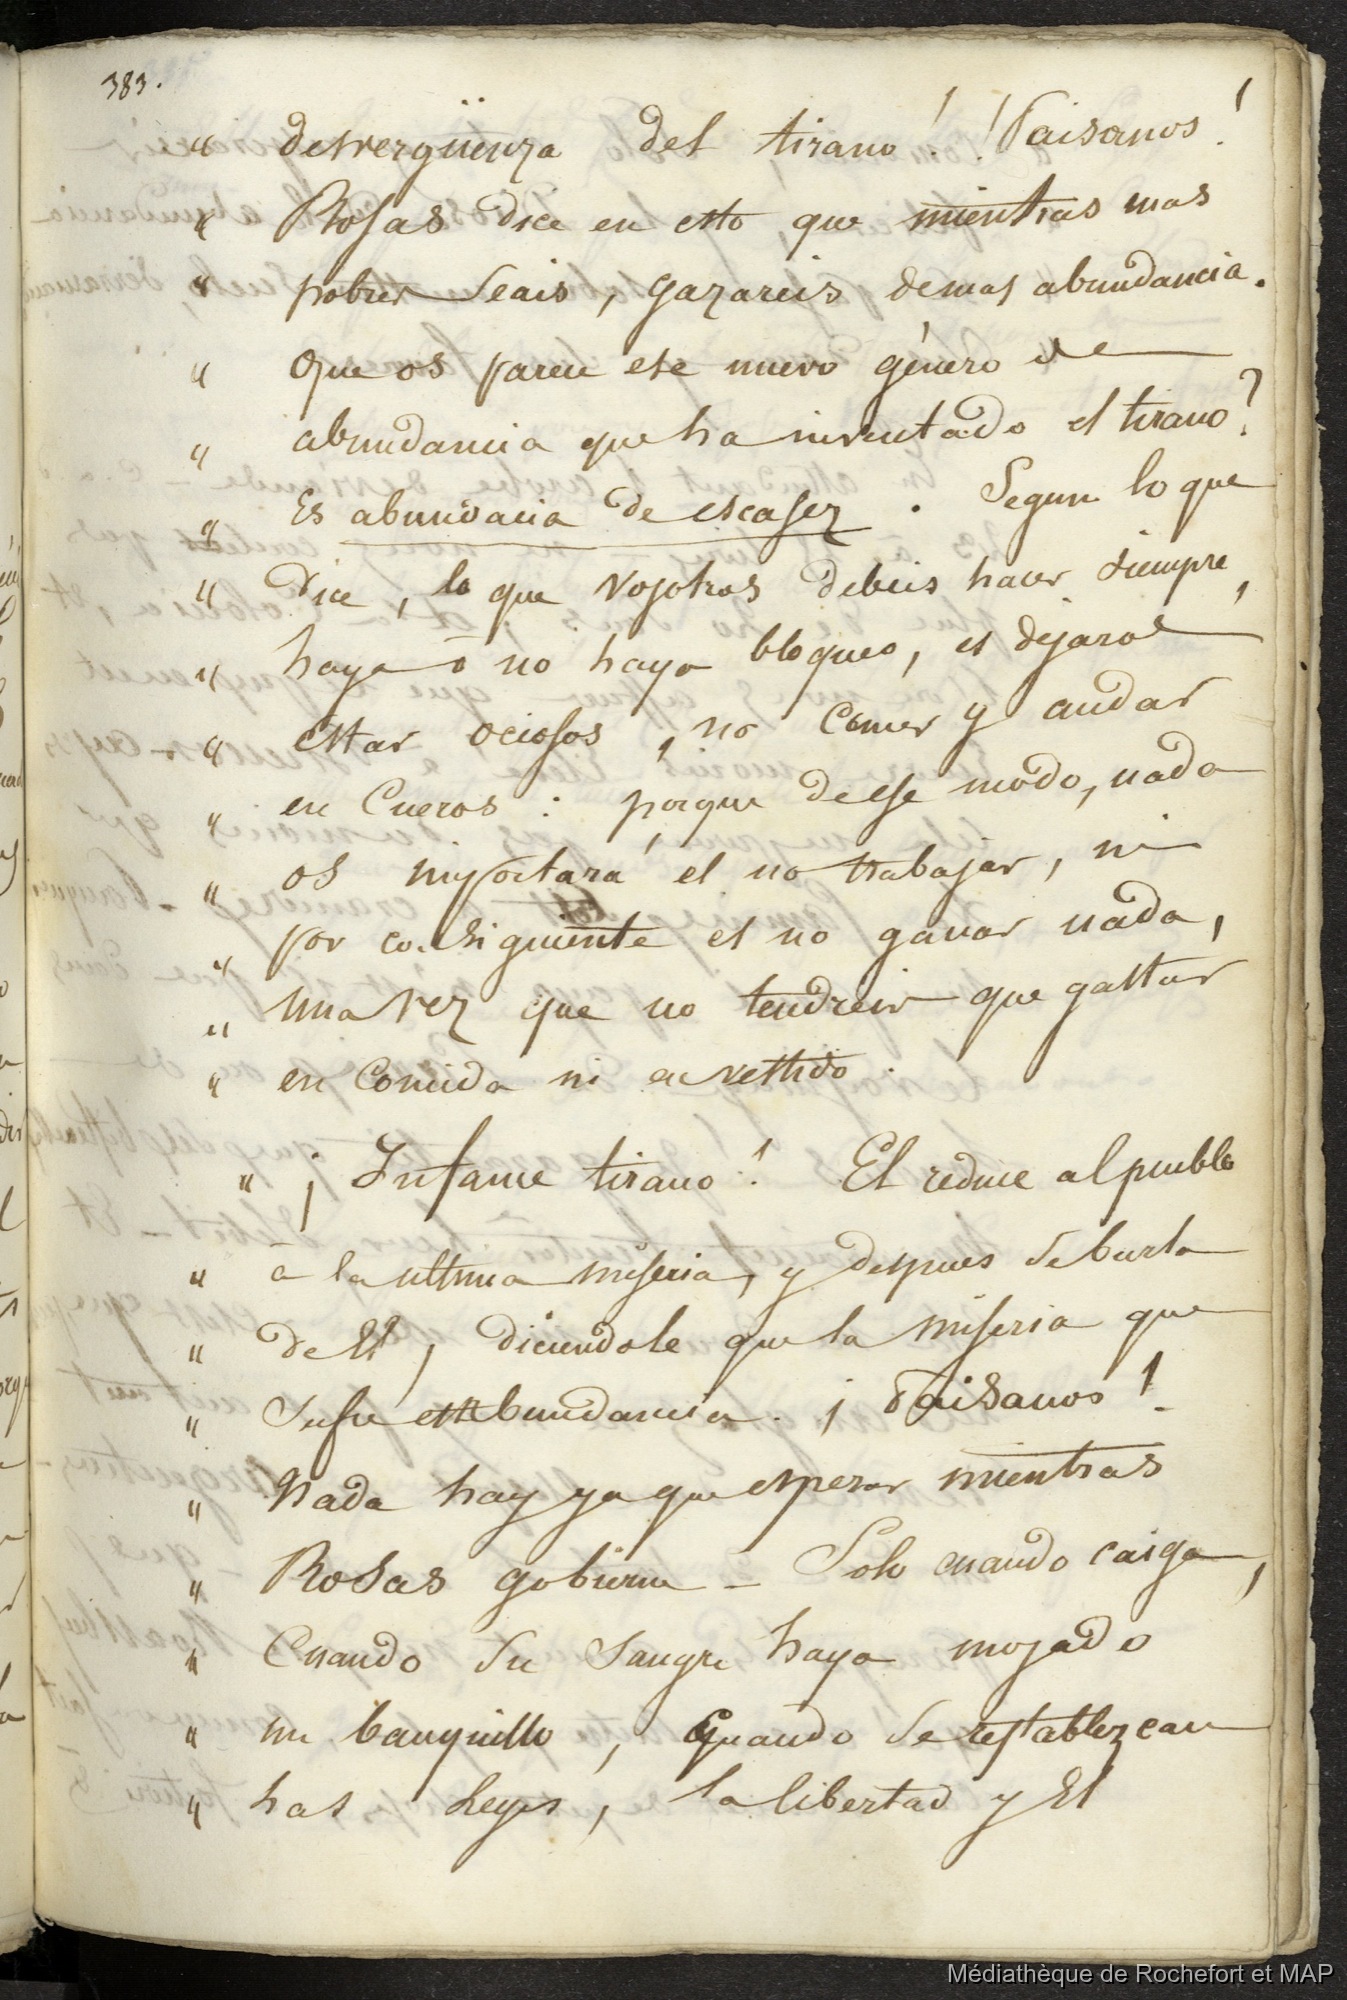 383.
" desvergüenza del tirano! ! Paisanos!
" Rosas dice en esto que mientras mas
" pobres seais, gazareis demas abundancia.
" Que os parece ese nuevo género de
" abundancia que ha inventado el tirano?
" Es abundacia de escasez. Segun lo que
" Dice, lo que vosotros debeis hacer siempre,
" haya o no haya bloqueo, es dejaros
" estar ociosos, no comer y andar
" en Cueros: porque de ese modo, nada
" os importará el no trabajar, ni
" por consiguiente el no ganar nada,
" una vez que no tendreis que gastar
" en Comida ni en vestido.
" ¡ Infame tirano! El reduce al pueblo
" à la ultima miseria, y despues se burla
" de El, diciendole que la miseria que
" sufre es abundancia. ¡ Paisanos!
" Nada hay ya que esperar mientras
" Rosas gobierne - Solo cuando caiga,
" Cuando su sangre haya mojado
" un banquillo, Quando se restablezcan
" las Leyes, la libertad y El
Médiathèque de Rochefort et MAP